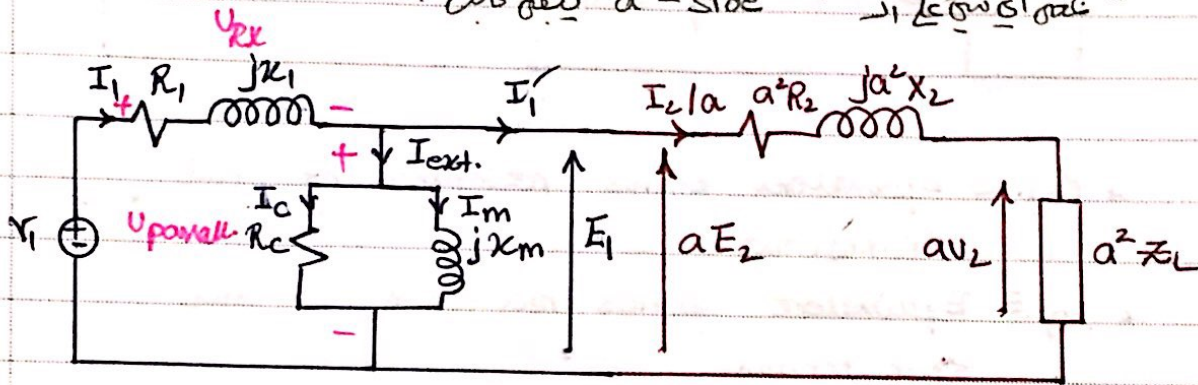 a - side
U_RX
I₁ + R₁ jx₁ - I₁′ I₂/a a²R₂ ja²X₂
+ I_ext.
I_c I_m
V₁ U_parall. R_c jx_m E₁ aE₂ aV₂ a²Z_L
-